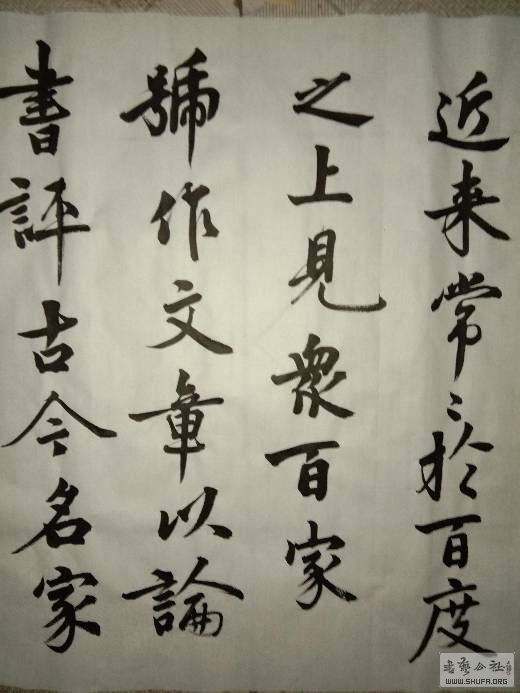 近来常〻於百度
之上見衆百家
號作文章以論
書評古今名家
书艺公社
WWW.SHUFA.ORG